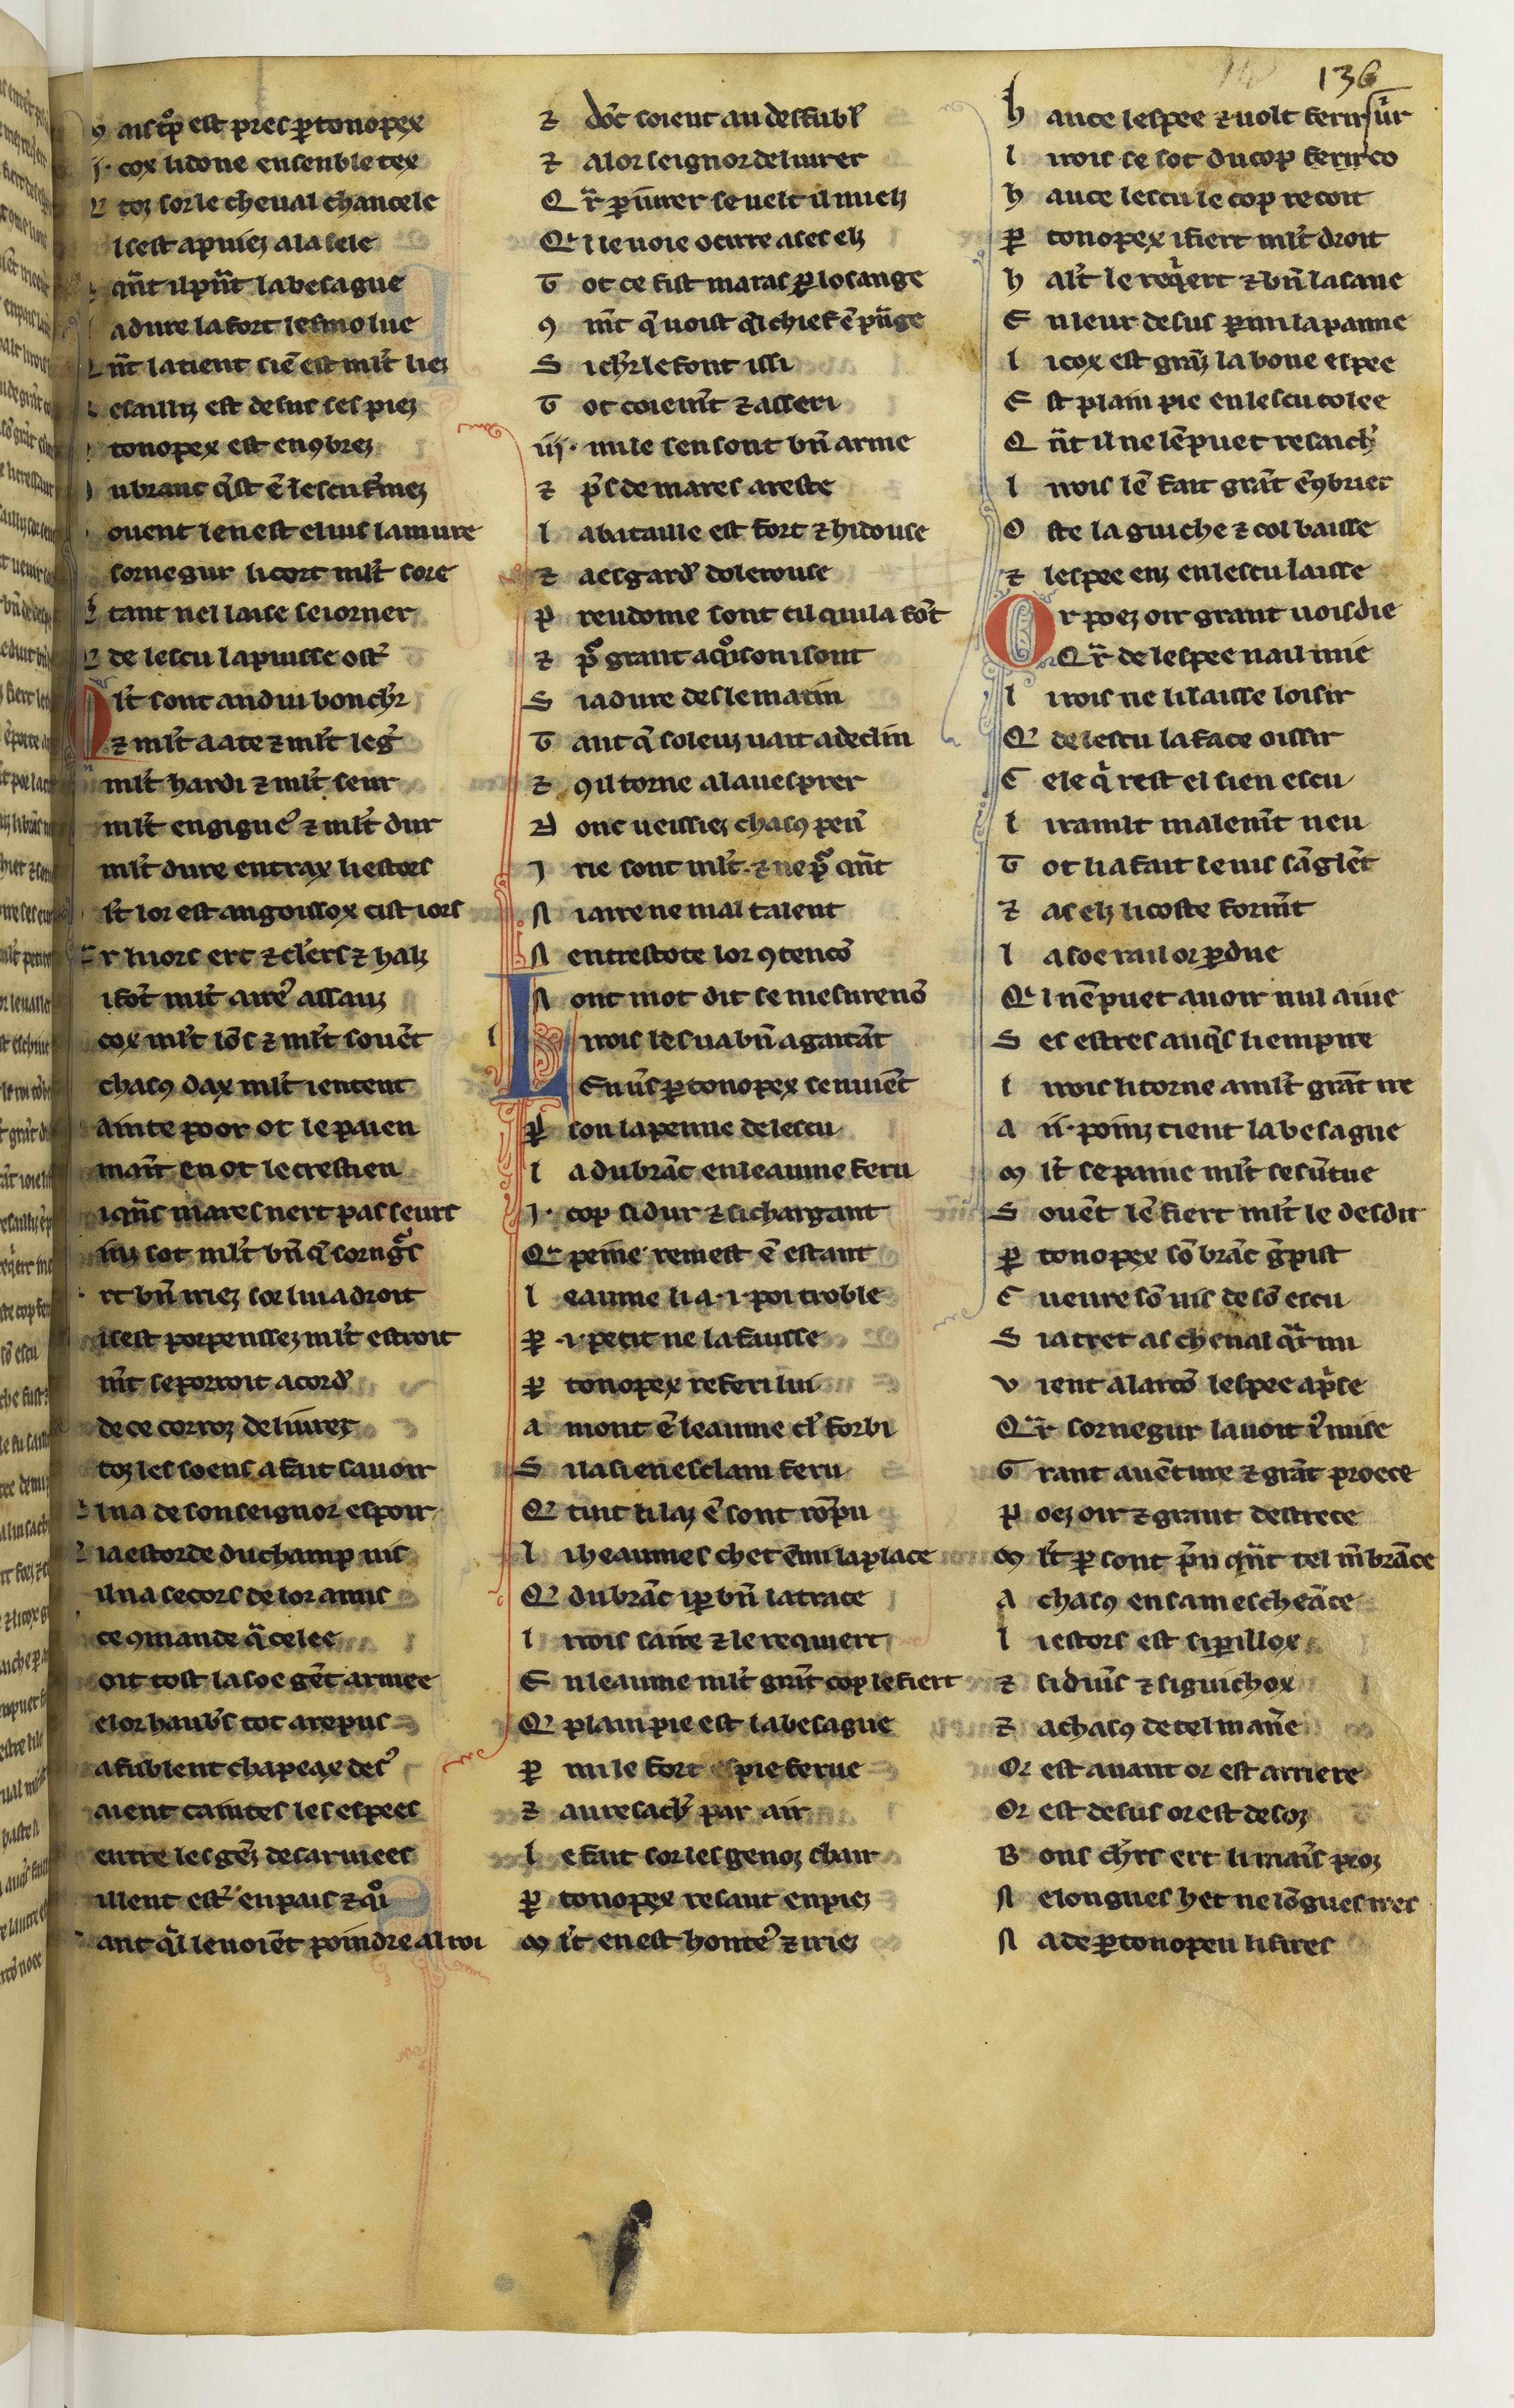 136
aistꝑ est pres ꝑtonopex
.i. cox li done ensenble tex
toz sor le cheual chancele
il est apuiez a la sele
qnt il pnt la besague
a dure la fort lesmolue
nt la tient siē est mlt liez
resailliz est desus ses piez
ꝑtonopex est en9brez
u branc qst ē lescu fmez
souent len est el uis la mure
sornegur li cort mlt sore
tant nel laise seiorner
de lescu la puisse ost
Mlt sont andui bon chr
⁊ mlt aate ⁊ mlt leg
mlt hardi ⁊ mlt seur
mlt engigne ⁊ mlt dur
mlt dure entrax li estors
lt lor est angoissox cist iors
r li iors ert ⁊ clers ⁊ halz
i fōt mlt aire assauz
cox mlt lōs ⁊ mlt souēt
chas9 dax mlt i entent
ainte poor ot le paien
maīt en ot le crestien
iqns mares nert pas seurs
miz sot mlt bn q sorngs
rt bn iriez sor lui a droit
il sest porpensez mlt estroit
mt se porroit acord
de ce corroz deliurer
toz les soens a fait sauoir
l ni a de son seignor espoir
ia estorde du champ uis
il na secors de lor amis
ce 9mande q a celee
oit tost la soe gēt armee
e lor haubs toz arepus
afublent chapeax des9
aient caintes les espees
entre les gēz desarmees
uillent estr en pais ⁊ qoi
ant qil le uoiēt poindre al roi
⁊ dōc soient au desfubl
⁊ a lor seignor deliurer
Qr ꝑ iurer se uelt il muelz
Qil le uoie ocirre a ses elz
Tot ce fist maras ꝑ losange
9mt q uoist qil chief ē pnge
Si chr le font issi
Tot coiemt ⁊ asseri
iij. mile sen sont bn arme
⁊ ps de mares areste
la bataille est fort ⁊ hidouse
⁊ a esgard dolerouse
preudome sont cil qui la fōt
⁊ ꝑ grant aqison i sont
Si a dure des le matin
Tant q soleiz uait a declin
⁊ 9il torne a la uesprer
Donc ueissiez chas9 pen
Irie sont mlt. ⁊ ne ꝑ qnt
Ni a ire ne mal talent
Nentrestote lor 9tencō
Nont mot dit se mesure nō
Lirois les ua bn agaitāt
Enus ꝑtonopex se nuiēt
ꝑ son la penne de lescu
la du brāc en leaume feru
I. cop si dur ⁊ si chargant
Qa peine remest ē estant
leaume li a .i. poi troble
ꝑ .i. petit ne la fuisse
ꝑtonopex refert lui
amont ē leaume cl forbi
Sila si en esclam feru
Q tuit li laz ē sont rōpu
li heaumes chet ēmi la place
Q du brāc i ꝑt bn la trace
lirois saire ⁊ le requiert
En leaume mlt grāt cop le fiert
Q plain pie est la besague
ꝑmi le fort espie ferue
⁊ au resach par air
le fait sor les genoz chair
ꝑtonopex resaut en piez
Mlt en est honte ⁊ iriez
hauce lespee ⁊ uolt ferir sur
lirois se sot du cop ferir co
hauce lescu le cop recoit
ꝑtonopex i fiert mlt droit
halt le reqert ⁊ bn lasane
Enleur desus ꝑmi la panne
li cox est grāz la boue espee
Est plain pie en lescu colee
Qnt il ne lē puet resaich
lirois lē fait grāt ē9brier
Oste la guiche ⁊ col baisse
⁊ lespee enz en lescu laisse
Or poez oir grant uoisdie
Qr de lespee na il mie
lirois ne li laisse loisir
Q de lescu la face oissir
Cele qi rest el sien escu
lira mlt malemt neu
Tot li a fait le uis sāglēt
⁊ as elz li coste formt
la soe ra il or ꝑdue
Qil nē puet auoir nul aiue
Ses estres auqs li empire
lirois li torne a mlt grāt ire
a ii. poinz tient la besague
Mlt se paine mlt sesutue
Souēt lē fiert mlt le desdit
ꝑtonopex sō brāc gꝑist
Cueure sō uis de sō escu
Sia tret as cheual qr nu
Vient a larcō lespee a pse
Qr sornegur lauoit i mise
Grant auēture ⁊ grāt proece
poez oir ⁊ grant destrece
Mlt ꝑ sont pu qnt tel mbrāce
a chas9 en sa mescheāce
li estors est si ꝑillox
⁊ si diuis ⁊ si guichox
⁊ a chas9 de tel mane
Or est auant or est arriere
Or est desus or est desoz
Bons chrs ert li maus proz
Ne longues het ne lōgues ires
Na de ꝑtonopeu li sires